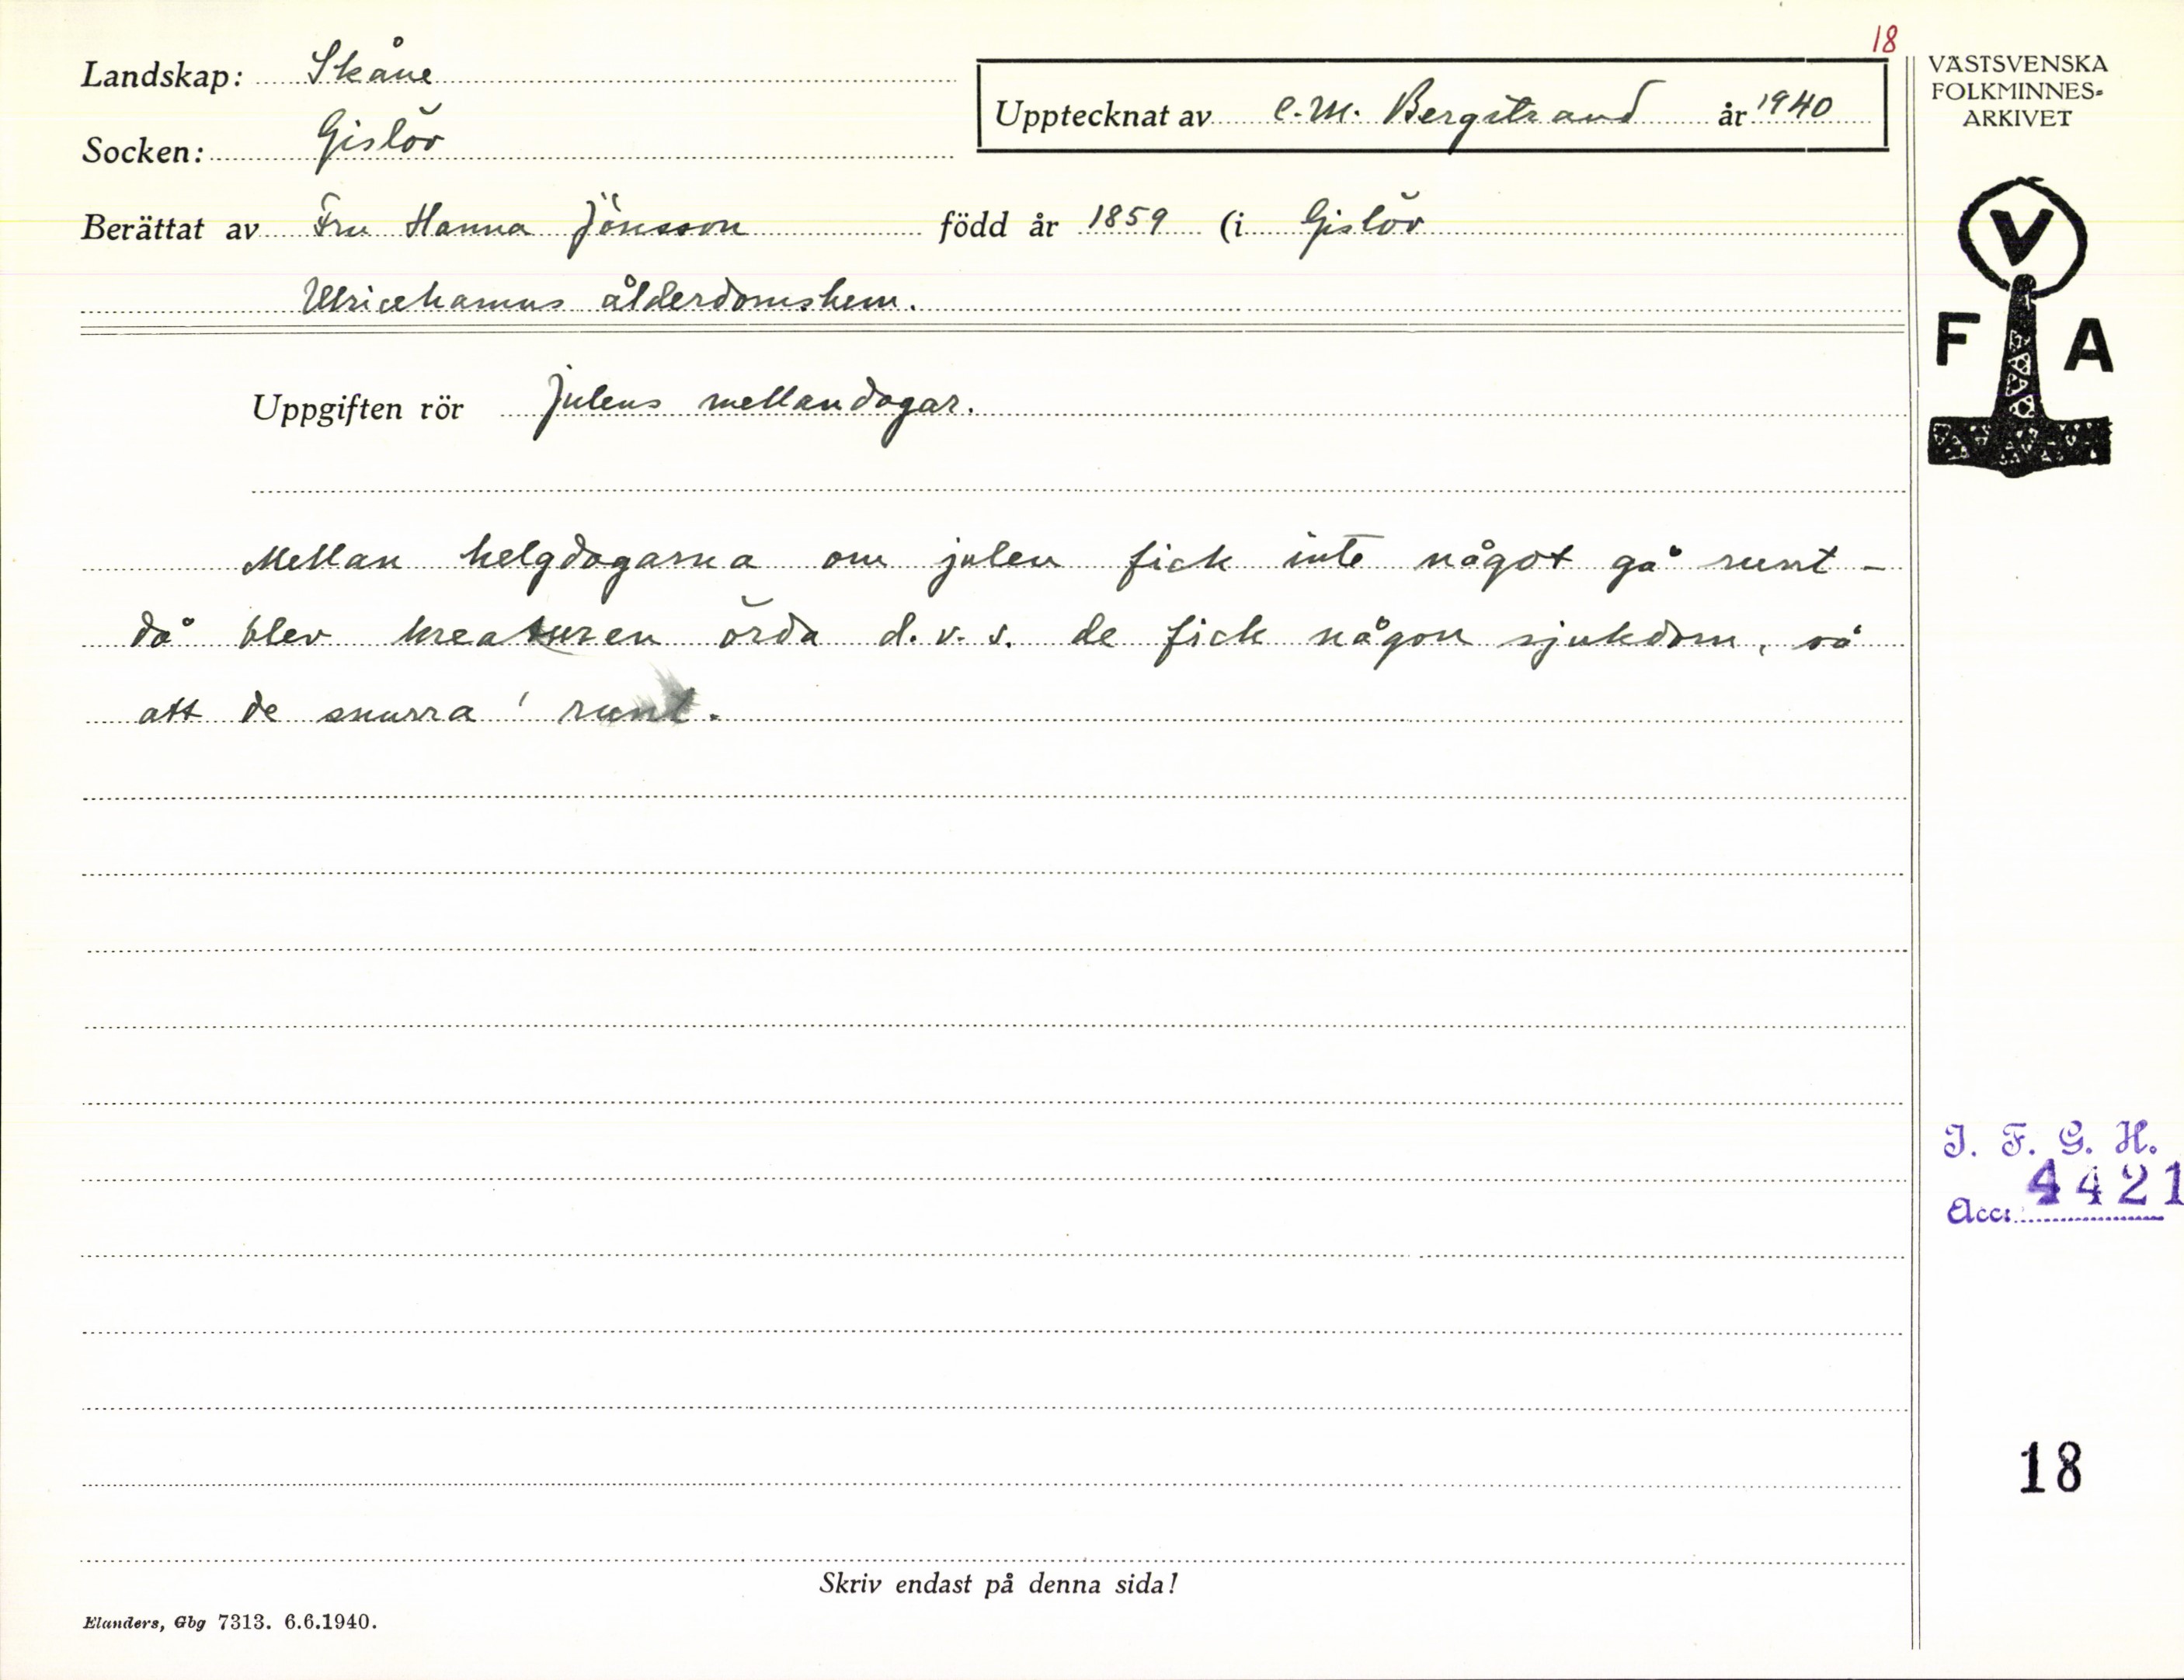 18
Landskap: Skåne
Upptecknat av C.M. Bergstrand år 1940
Socken: Gislöv
Berättat av Fru Hanna Jönsson född år 1859 (i Gislöv
Ulricehamns ålderdomshem.
Uppgiften rör Julens mellandagar.
Mellan helgdagarna om julen fick inte något gå runt –
då blev kreaturen örda d.v.s. de fick någon sjukdom, så
att de snurra' runt.
Skriv endast på denna sida!
Elanders, Gbg 7313. 6.6.1940.
VÄSTSVENSKA
FOLKMINNES-
ARKIVET
V
F A
I. F. G. H.
Acc: 4421
18